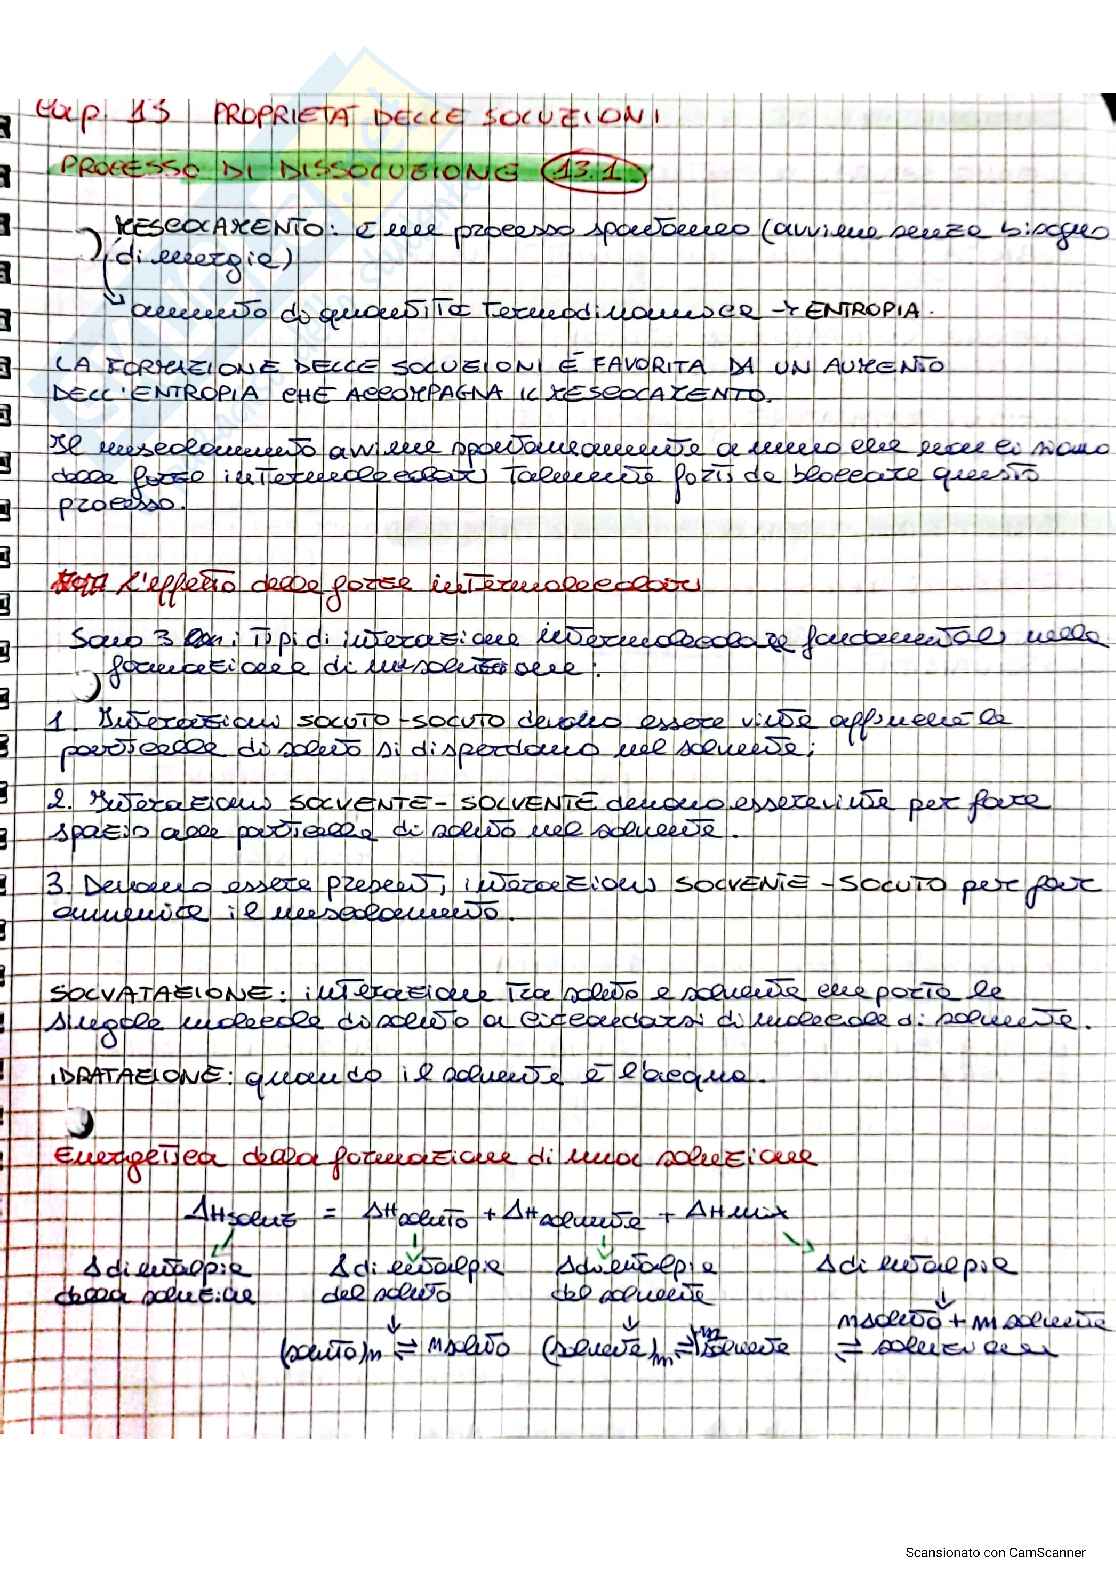 Cap. 13 PROPRIETÀ DELLE SOLUZIONI
PROCESSO DI DISSOLUZIONE 13.1
MESCOLAMENTO: È un processo spontaneo (avviene senza bisogno
di energia)
aumento di quantità termodinamica → ENTROPIA.
LA FORMAZIONE DELLE SOLUZIONI È FAVORITA DA UN AUMENTO
DELL'ENTROPIA CHE ACCOMPAGNA IL MESCOLAMENTO.
Il mescolamento avviene spontaneamente a meno che non ci siano
delle forze intermolecolari talmente forti da bloccare questo
processo.
L'effetto delle forze intermolecolari
Sono 3 i tipi di interazione intermolecolare fondamentali nella
formazione di una soluzione:
1. Interazioni SOLUTO-SOLUTO devono essere vinte affinché le
particelle di soluto si disperdano nel solvente;
2. Interazioni SOLVENTE-SOLVENTE devono essere vinte per fare
spazio alle particelle di soluto nel solvente.
3. Devono essere presenti interazioni SOLVENTE-SOLUTO per far
avvenire il mescolamento.
SOLVATAZIONE: interazione tra soluto e solvente che porta le
singole molecole di soluto a circondarsi di molecole di solvente.
IDRATAZIONE: quando il solvente è l'acqua.
Energetica della formazione di una soluzione
ΔHsoluz = ΔHsoluto + ΔHsolvente + ΔHmix
Δ di entalpia Δ di entalpia Δ di entalpia Δ di entalpia
della soluzione del soluto del solvente
m soluto + m solvente
(soluto)n ⇌ n soluto (solvente)m ⇌ m solvente ⇌ soluzione
Scansionato con CamScanner